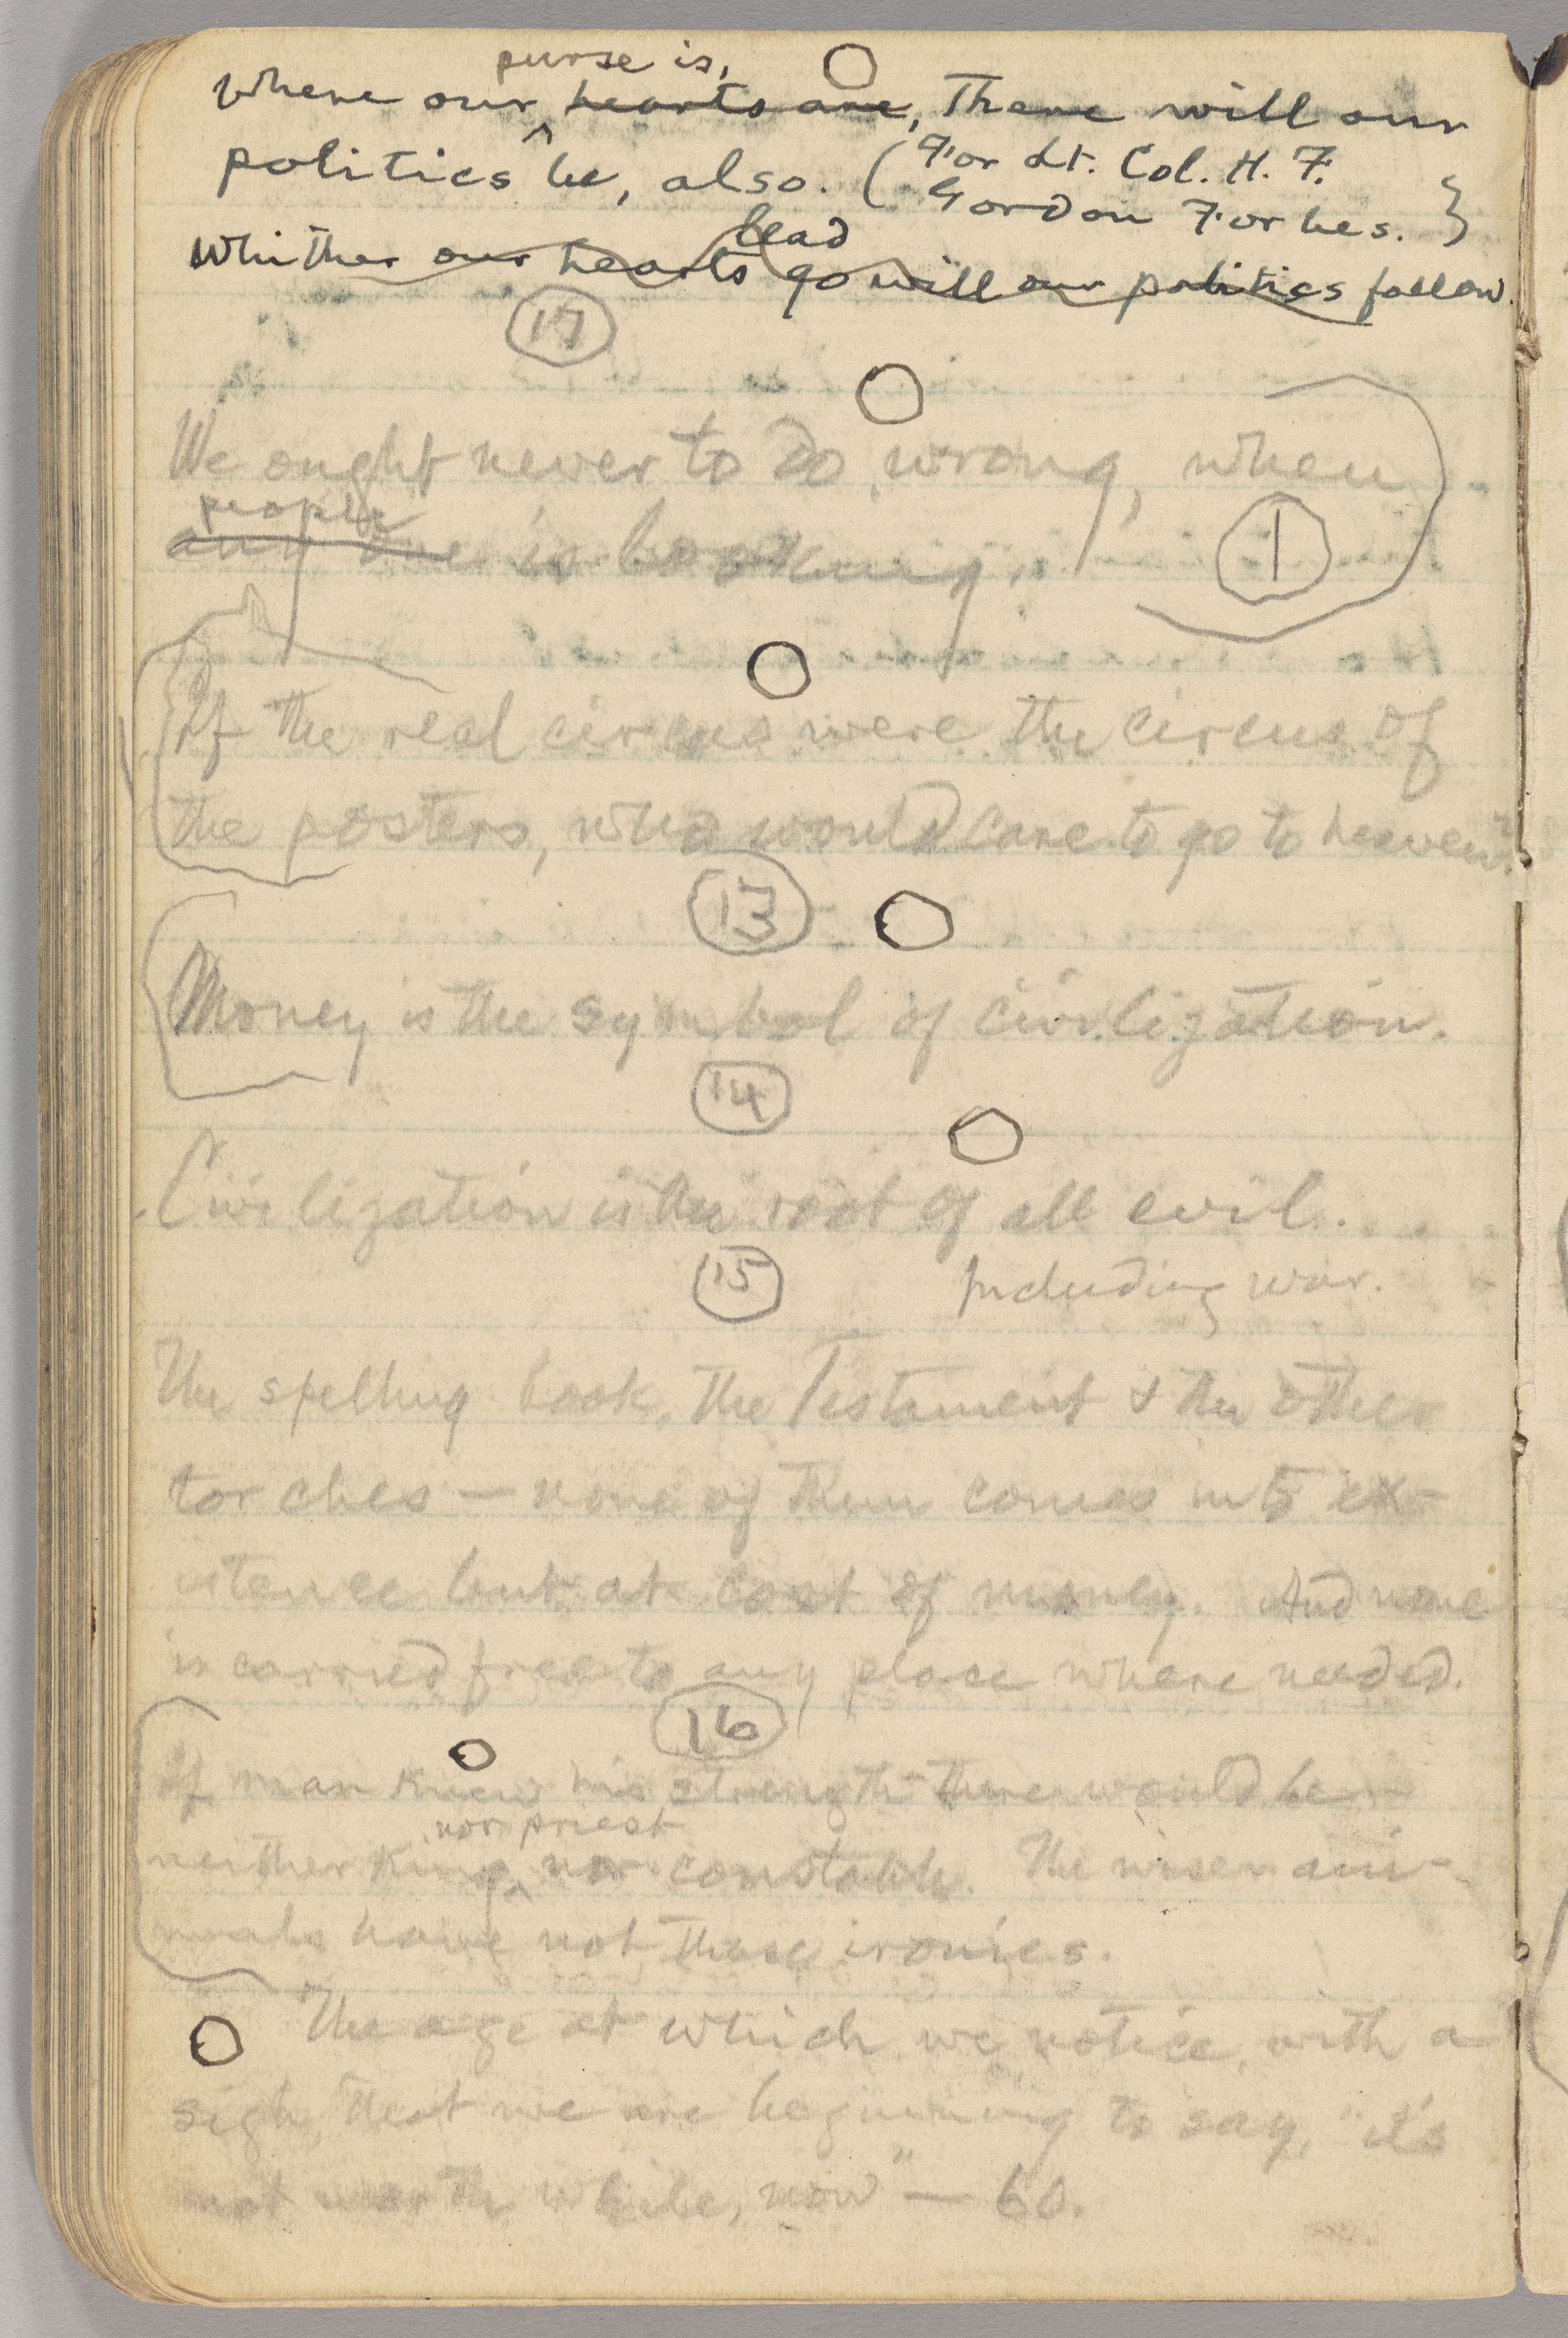 purse is,
Where our hearts are, There will our
politics be, also. (For Lt. Col. H. F.
Gordon Forbes.)
lead
Whither our hearts go will our politics follow.
17
We ought never to do wrong, when
people
any one is looking.
1
If the real circus were the circus of
the posters, who would care to go to heaven?
13
Money is the symbol of civilization.
14
Civilization is the root of all evil.
15
Including war.
The spelling book, the Testament & the other
torches — none of them comes into ex-
istence but at cost of money. And none
is carried free to any place where needed.
16
If man knew his strength there would be
nor priest
neither king, nor constable. The wiser ani-
mals have not these ironies.
The age at which we notice, with a
sigh, that we are beginning to say, "it's
not worth while, now" — 60.